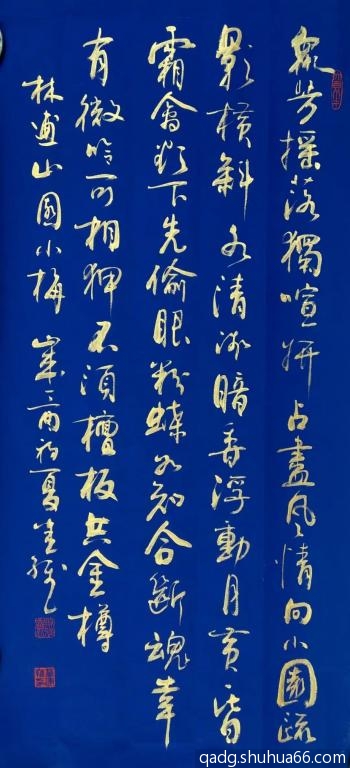 衆芳摇落獨喧妍占盡風情向小園疏
影横斜水清淺暗香浮動月黄昏
霜禽欲下先偷眼粉蝶如知合斷魂幸
有微吟可相狎不須檀板共金樽
林逋山園小梅 歲 初夏
qadg.shuhua66.com